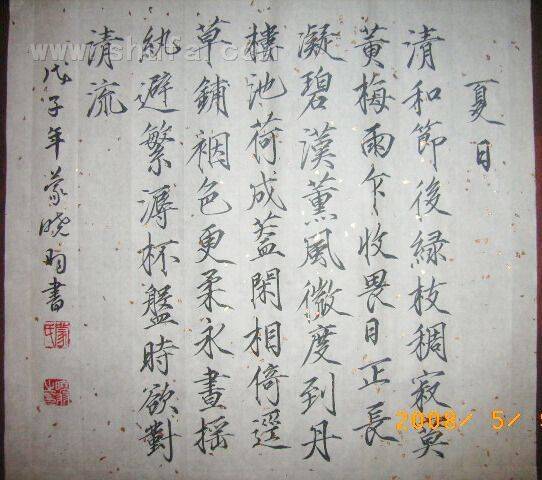 夏日
清和節後緑枝稠寂莫
黄梅雨乍收畏日正長
凝碧漢薰風微度到丹
樓池荷成蓋閑相倚逕
草鋪裀色更柔永晝揺
紈避繁溽杯盤時欲對
清流
戊子年蒙晓書
2008/ 5/